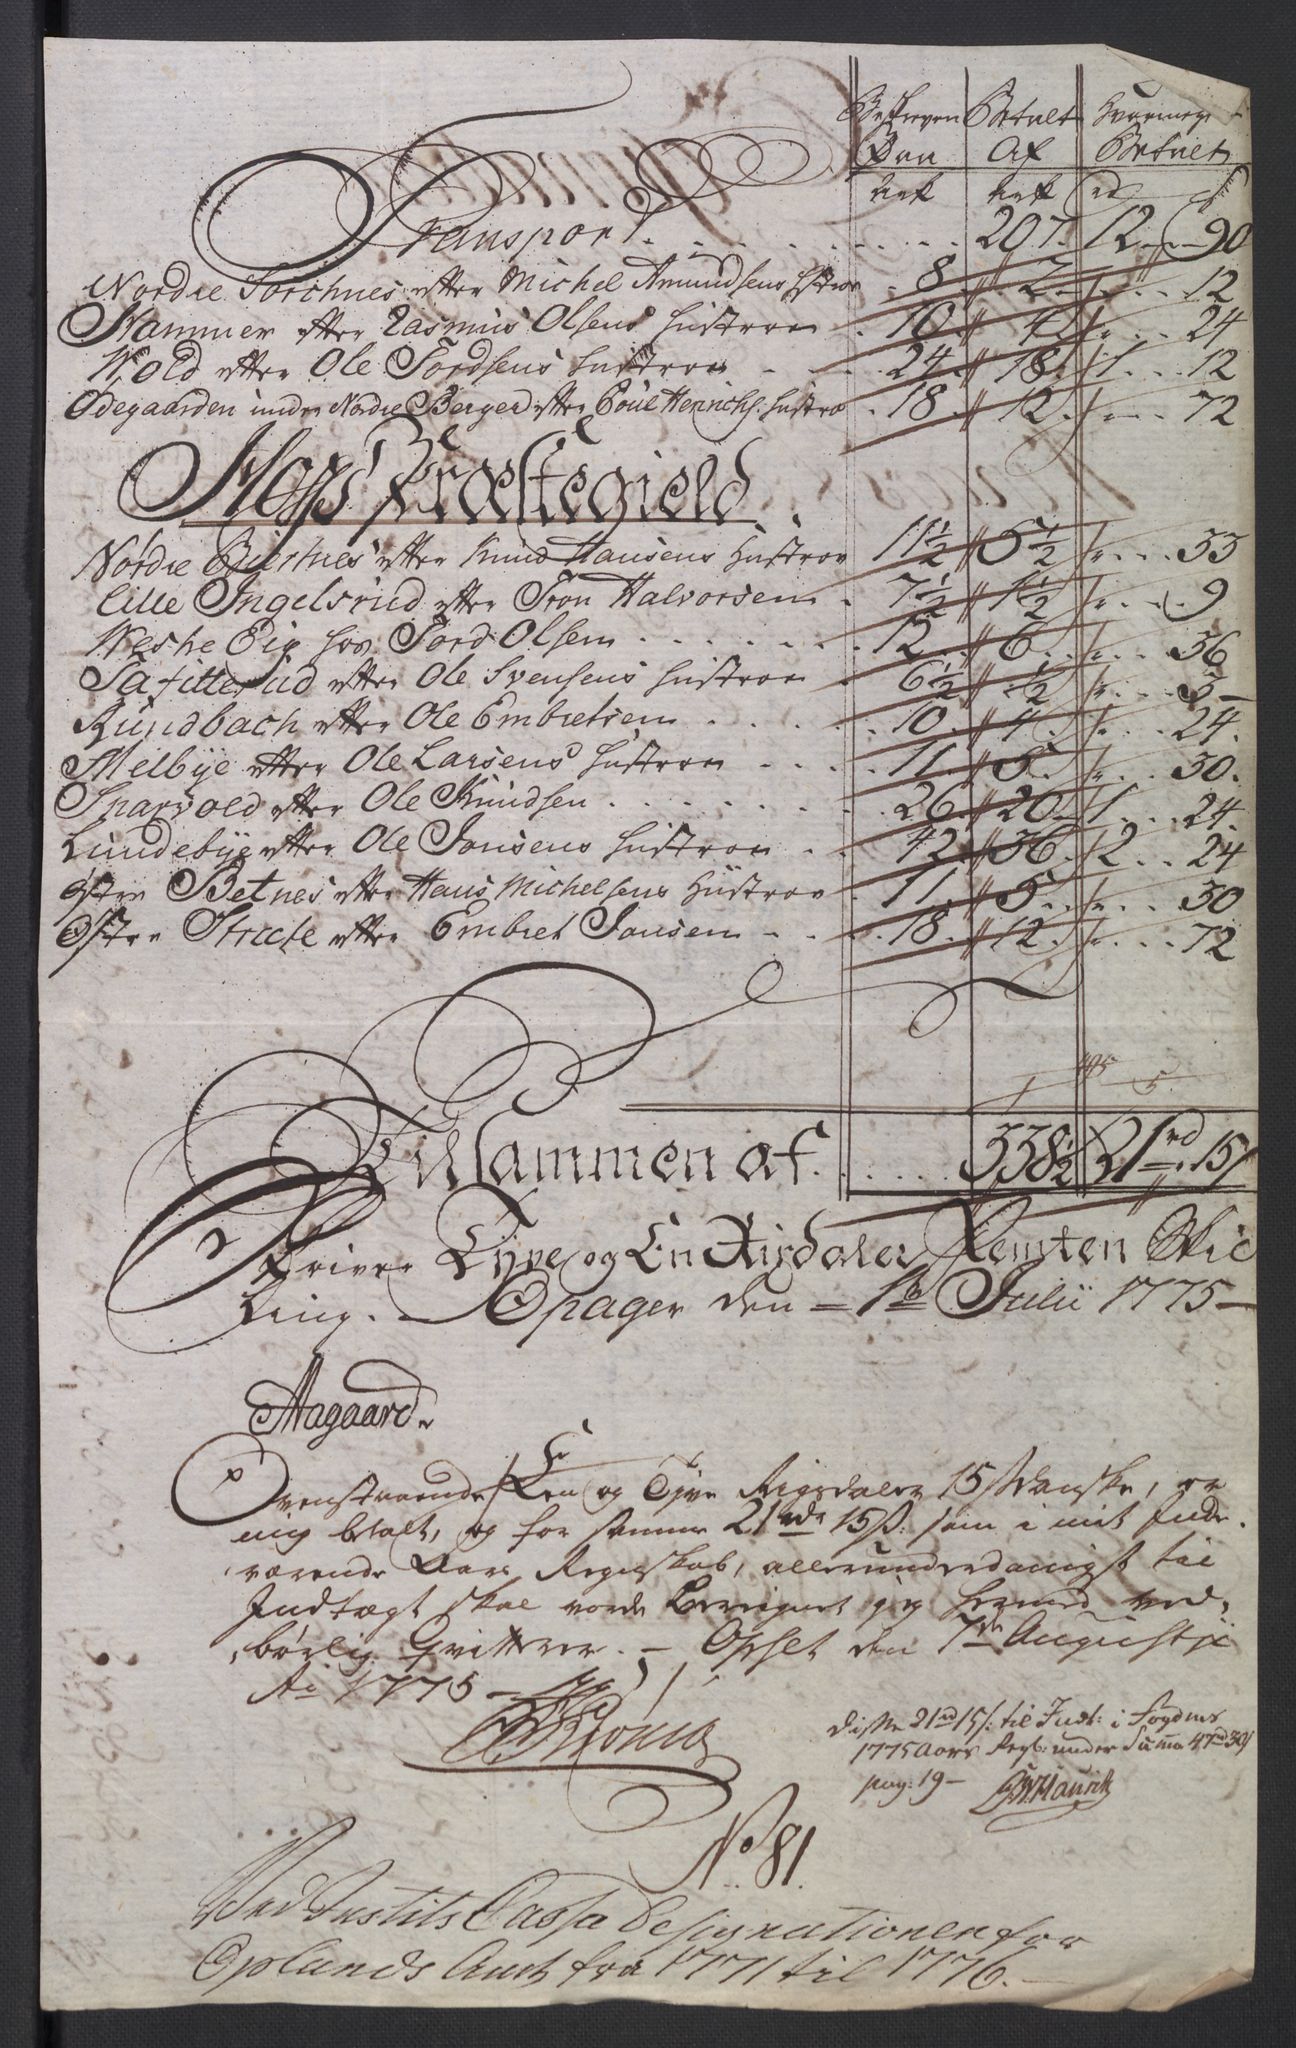 Beskreven Betalt Hvormeget
Øxen Af Betalt
art art rd ſ
Transport. . . . . . . . . . . . . 207. 12 . . . 90
Nordre Torchnes efter Michel Amundsens Hustroe . 8 2 " . . . 12
Hammer efter Rasmus Olsens Hustroe . 10 4 " . . . 24
Wold efter Ole Tordsens Hustroe . . . 24 18 1 . . . 12
Ødegaarden under Nordre Berger efter Poul Henrichs. Hustroe . 18 12 " . . . 72
Høfs Præstegield
Nordre Biertnes efter Knud Hansens Hustroe 11 1/2 5 1/2 " . . . 33
Lille Ingelsrud efter Tron Halvorsen . 7 1/2 1 1/2 " . . . 9
Westre Eig hos Tord Olsen . . . . . . 12 6 " . . . 36
efter Ole Svensens Hustroe . 6 1/2 1/2 " . . . 3
Rundbach efter Ole Embretsen . . . . 10 4 " . . . 24.
Melbye efter Ole Larsens Hustroe . . . . 11 5 " . . . 30.
Sparvold efter Ole Knudsen . . . . . . . 26 20 1 . . . 24.
Lundebye efter Ole Jonsens Hustroe . . 42 36 2 . . 24
Østre Betnes efter Hans Michelsens Hustroe . 11 5 " . . . 30
Østre Streete efter Embret Jonsen . . . . 18 12 " . . . 72
495 5
Tilsammen af . . . . . 338 1/2 21 rd 15 ſ
Skriver Tyve og En Rixdaler Femten Skil
ling. Opager den 1te Julii 1775
Aagaard
Ovenstaaende Een og Tyve Rigsdaler 15 ſ danske, er
mig betalt, og for samme 21 rdr 15 ß: som i mit Inde
værende Aars Regnskab, allerunderdanigst til
Indtægt skal vorde Beregnet jeg herved ved
børlig Qvitterer. – Opset den 7de Augustii
Ao 1775
Disse 21 rd 15 ſ: til Indt: i Fogdens
1775 Aars Regb: under Suma 47 rd 30 ſ
pag: 19 –
No. 81.
Ved Justits Cassa Designationen for
Oplands Amt fra 1771 til 1776. –